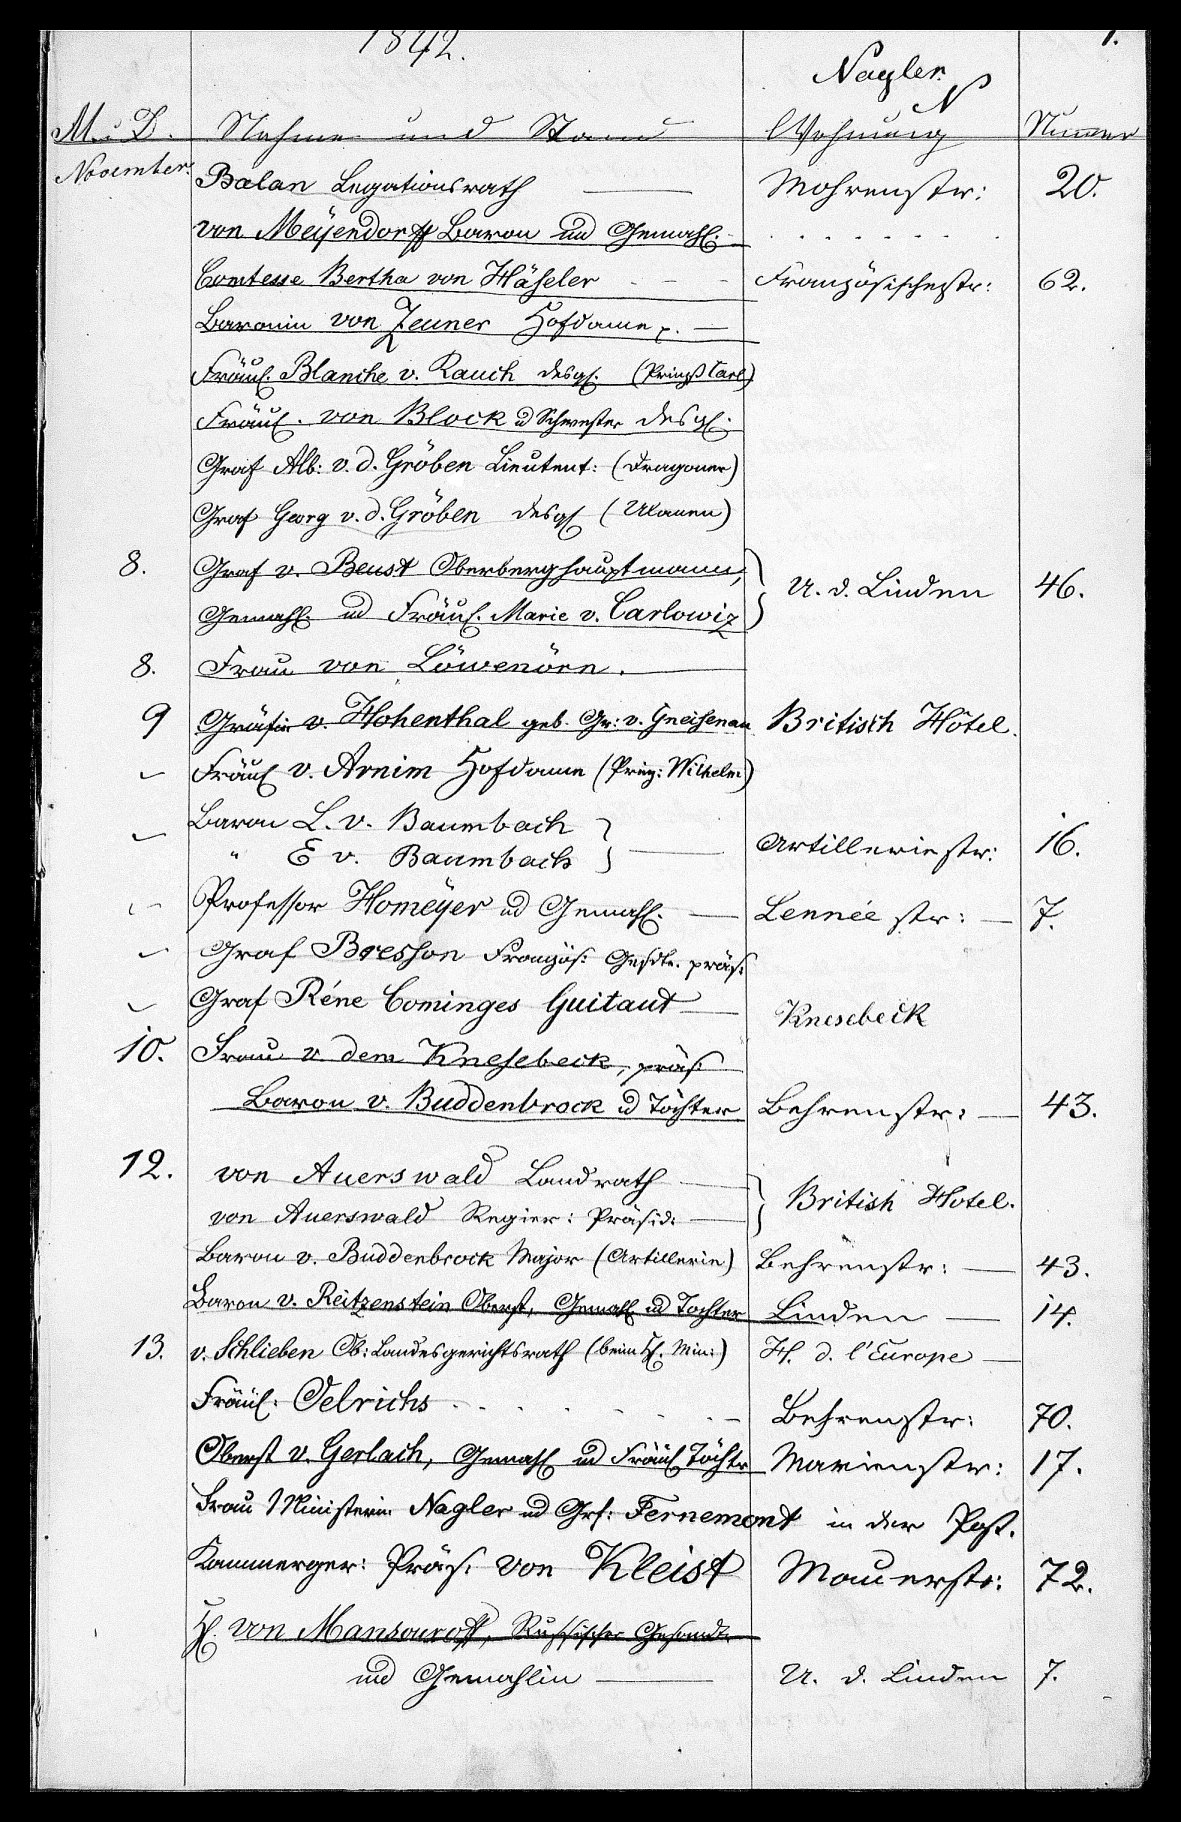 1842.
1.
Nagler.
N
M. u D. Nahme und Stand Wohnung Nummer
November. Balan Legationsrath Mohrenstr: 20.
von Meÿendorff Baron und Gemahl.
Comtesse Bertha von Häseler Französischestr: 62.
Baronin von Zeuner Hofdame
Fräul. Blanche v. Rauch desgl. (Prinzß Carl)
Fräul. von Block ud Schwester desgl.
Graf Alb: v. d. Gröben Lieutent: (Dragoner)
Graf Georg v. d. Gröben desgl (Ulanen)
8. Graf v. Beust Oberberghauptmann,
Gemahl. ud Fräul. Marie v. Carlowiz U. d. Linden 46.
8. Frau von Löwenörn.
9 Gräfin v. Hohenthal geb. Gr: v. Gneisenau Britisch Hôtel.
Fräul v. Arnim Hofdame (Prinz: Wilhelm)
Baron L. v. Baumbach
" E v. Baumbach Artilleriestr: 16.
Professor Homeÿer ud Gemahl. Lennée str: 7.
Graf Bresson Französ: Gesdte. präs:
Graf Réne Cominges Guitaut
Knesebeck
10. Frau v dem Knesebeck, präs
Baron v. Buddenbrock ud Töchter Behrenstr: 43.
12. von Auerswald Landrath
von Auerswald Regier: Präsid: British Hotel.
Baron v. Buddenbrock Major (Artillerie) Behrenstr: 43.
Baron v. Reitzenstein Oberst, Gemahl ud Tochter Linden 14.
13. v. Schlieben Ob: Landesgerichtsrath (beim H. Min:) H. d. l'Europe
Fräul: Oelrichs Behrenstr: 70.
Oberst v. Gerlach, Gemahl ud Fräul Töchtr Marienstr: 17.
Frau Ministerin Nagler ud Grf: Fernemont in der Post.
Kammerger: Präs: von Kleist Mauerstr: 72.
H. von Mansouroff, Russischer Gesandte
und Gemahlin U. d. Linden 7.